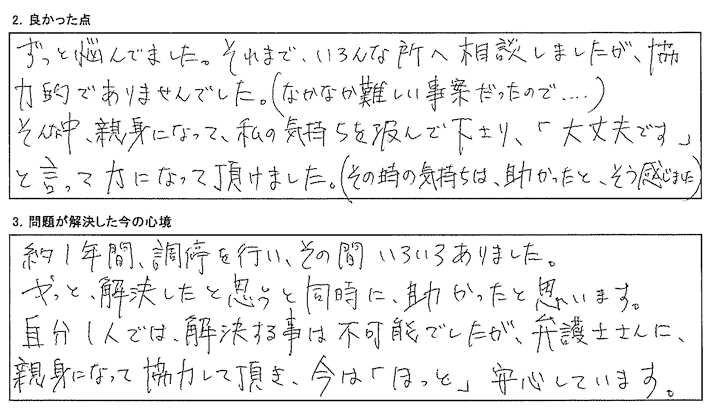 2. 良かった点
ずっと悩んでました。それまで、いろんな所へ相談しましたが、協
力的でありませんでした。(なかなか難しい事案だったので....)
そんな中、親身になって、私の気持ちを汲んで下さり、「大丈夫です」
と言って力になって頂けました。(その時の気持ちは、助かったと、そう感じました)
3. 問題が解決した今の心境
約1年間、調停を行い、その間いろいろありました。
やっと、解決したと思うと同時に、助かったと思います。
自分1人では、解決する事は不可能でしたが、弁護士さんに、
親身になって協力して頂き、今は「ほっと」安心しています。